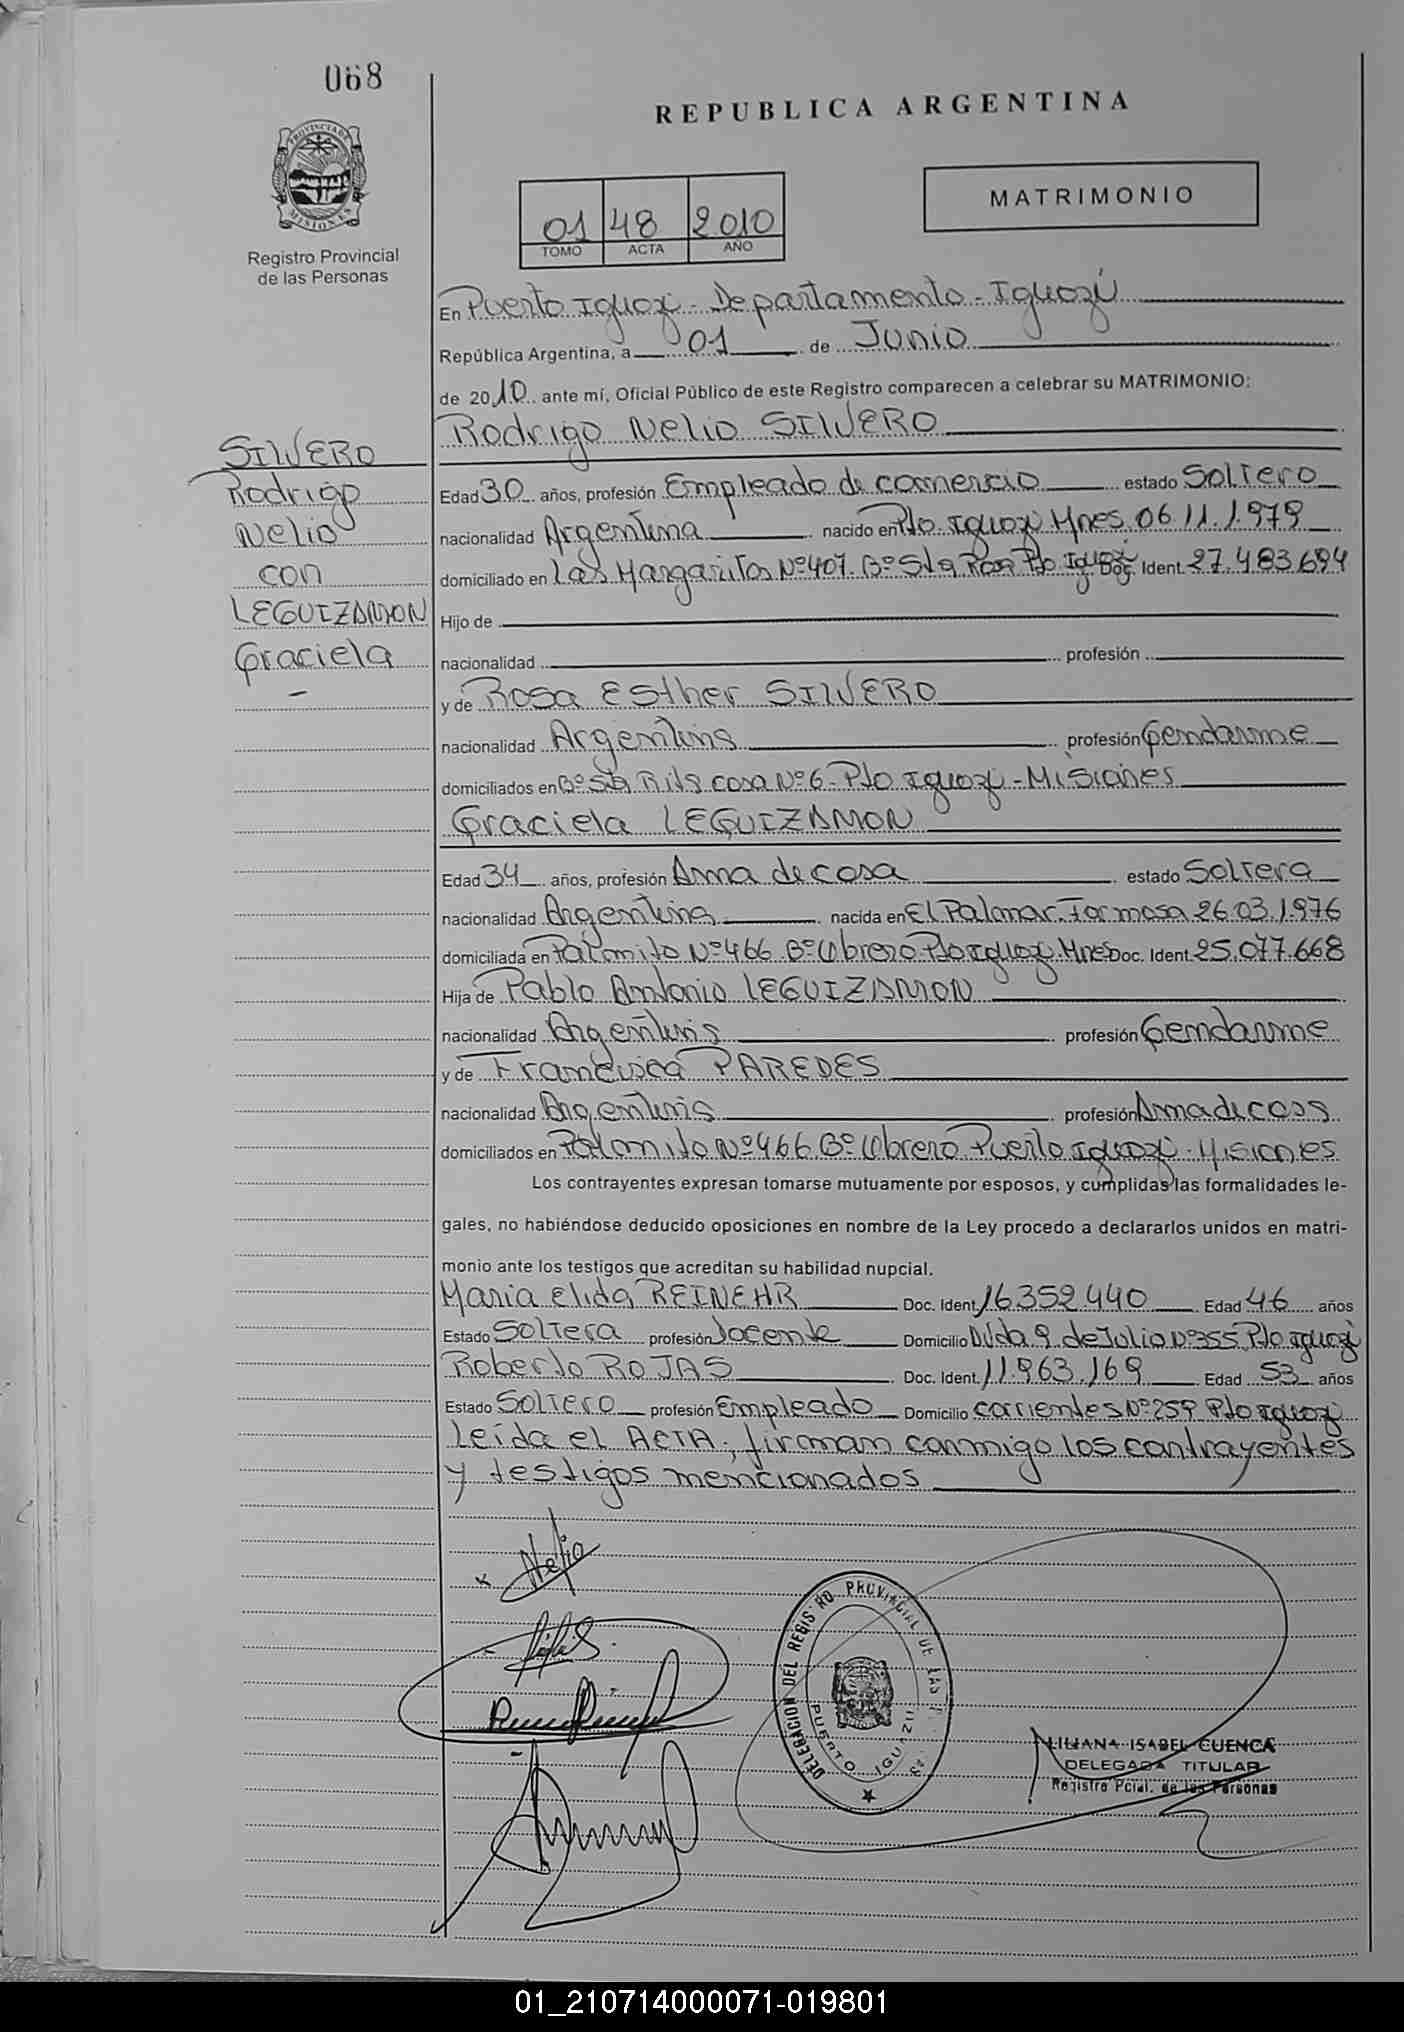 068
REPUBLICA ARGENTINA
PROVINCIA DE MISIONES
Registro Provincial
de las Personas
01 48 2010
TOMO ACTA AÑO
MATRIMONIO
En Puerto Iguazú - Departamento - Iguazú
República Argentina, a 01 de Junio
de 2010 ante mí, Oficial Público de este Registro comparecen a celebrar su MATRIMONIO:
Rodrigo Nelio SILVERO
SILVERO
Rodrigo
Nelio
con
LEGUIZAMON
Graciela
Edad 30 años, profesión Empleado de comercio estado Soltero
nacionalidad Argentina nacido en Pto Iguazú Mnes. 06.11.1979
domiciliado en Las Margaritas Nº407. Bº Sta Rosa Pto Iguazú Doc. Ident. 27.483.694
Hijo de
nacionalidad profesión
y de Rosa Esther SILVERO
nacionalidad Argentina profesión Gendarme
domiciliados en Bº Sta Rita casa Nº6 - Pto Iguazú - Misiones
Graciela LEGUIZAMON
Edad 34 años, profesión Ama de casa estado Soltera
nacionalidad Argentina nacida en El Palmar. Formosa 26.03.1976
domiciliada en Palmito Nº466 Bº Obrero Pto Iguazú. Mnes Doc. Ident. 25.077.668
Hija de Pablo Antonio LEGUIZAMON
nacionalidad Argentina profesión Gendarme
y de Francisca PAREDES
nacionalidad Argentina profesión Ama de casa
domiciliados en Palmito Nº466 Bº Obrero Puerto Iguazú - Misiones
Los contrayentes expresan tomarse mutuamente por esposos, y cumplidas las formalidades le-
gales, no habiéndose deducido oposiciones en nombre de la Ley procedo a declararlos unidos en matri-
monio ante los testigos que acreditan su habilidad nupcial.
Maria Elida REINEHR Doc. Ident. 16.352.440 Edad 46 años
Estado Soltera profesión Docente Domicilio Avda. 9 de Julio Nº355 Pto Iguazú
Roberto ROJAS Doc. Ident. 11.963.169 Edad 53 años
Estado Soltero profesión Empleado Domicilio Corrientes Nº259 Pto Iguazú
Leída el ACTA, firman conmigo los contrayentes
y testigos mencionados
Nelio
DELEGACION DEL REGISTRO PROVINCIAL DE LAS
PUERTO IGUAZU
LILIANA ISABEL CUENCA
DELEGADA TITULAR
Registro Pcial. de las Personas
01_210714000071-019801